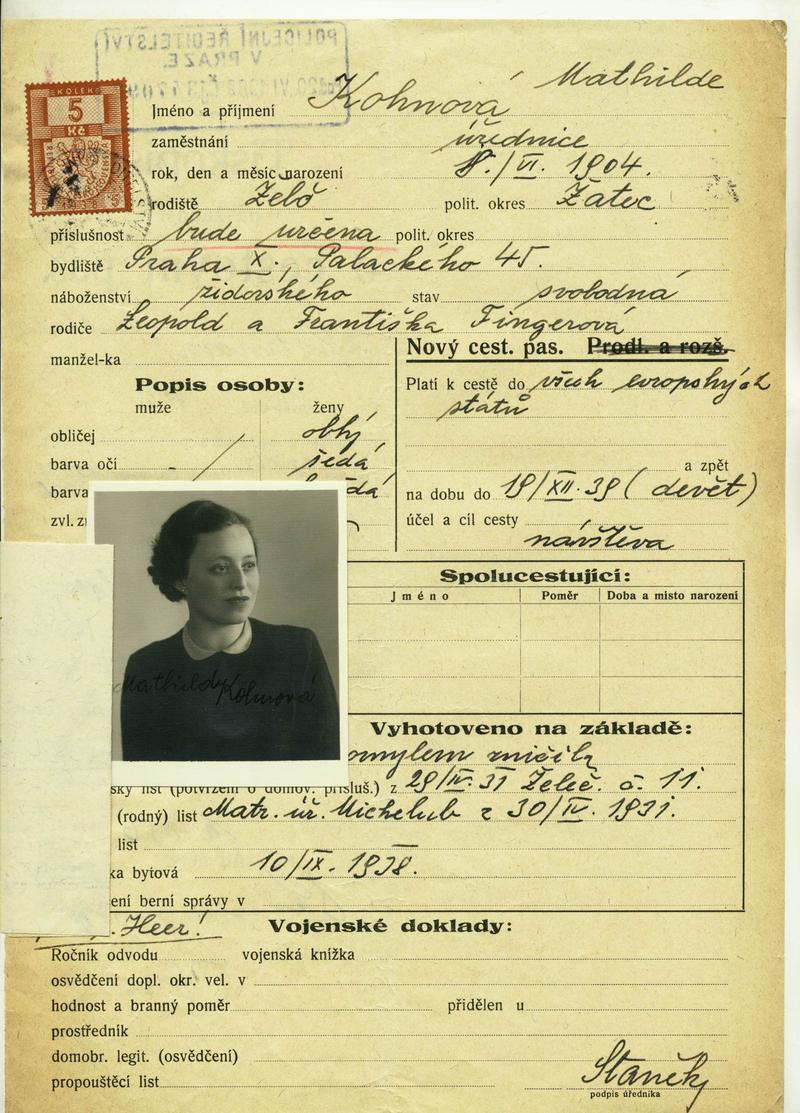 POLICEJNÍ ŘEDITELSTVÍ
V PRAZE
KOLEK
5
Kč
Mathilde
Jméno a příjmení Kohnová
zaměstnání úřednice
rok, den a měsíc narození 8./VI. 1904.
rodiště Želč polit. okres Žatec
příslušnost bude určena polit. okres
bydliště Praha X., Palackého 45.
náboženství židovského stav svobodná
rodiče Leopold a Františka Fingerová
manžel-ka
Nový cest. pas. Prodl. a rozš.
Popis osoby:
muže ženy
obličej oblý
barva očí šedá
barva
zvl. z
Platí k cestě do všech evropských
států
a zpět
na dobu do 19/XII. 39 (devět)
účel a cíl cesty
návštěva
Spolucestující:
Jméno Poměr Doba a misto narození
Mathildy Kohnová
Vyhotoveno na základě:
omylem zničily
ský list (potvrzení o domov. přísluš.) z 29/IV. 31 Želeč. č. 11.
(rodný) list Matr. úř. Michelub z 30/IV. 1931.
list
ka bytová 10/IX. 1938.
ení berní správy v
Heer!
Vojenské doklady:
Ročník odvodu vojenská knížka
osvědčení dopl. okr. vel. v
hodnost a branný poměr přidělen u
prostředník
domobr. legit. (osvědčení)
propouštěcí list
Staněk
podpis úředníka